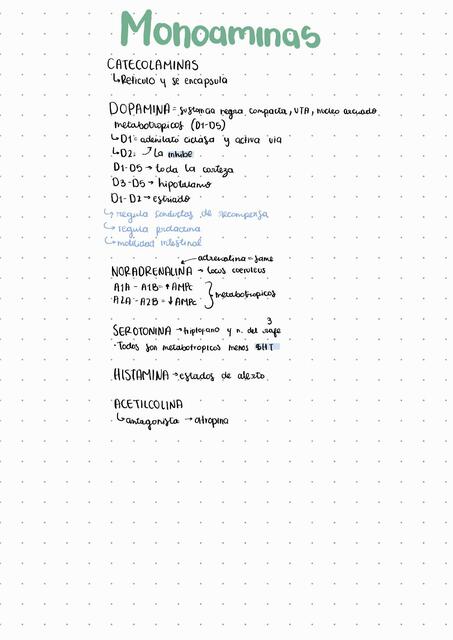 Monoaminas
CATECOLAMINAS
↳Reticulo y se encapsula
DOPAMINA= sustancia negra compacta, VTA, nucleo arcuado
metabotropicos (D1-D5)
↳D1= adenilato ciclasa y activa via
↳D2= ↗ La inhibe
D1-D5→ toda la corteza
D3-D5→ hipotalamo
D1-D2→ estriado
↳ regula conductas de recompensa
↳ regula prolactina
↳ motilidad intestinal
adrenalina= same
NORADRENALINA → locus coeruleus
A1A - A1B= ↑ AMPc
A2A - A2B= ↓ AMPc } metabotropicos
3
SEROTONINA → triptofano y n. del rafe
·Todos son metabotropicos menos 5HT
HISTAMINA → estados de alerta
ACETILCOLINA
↳antagonista → atropina